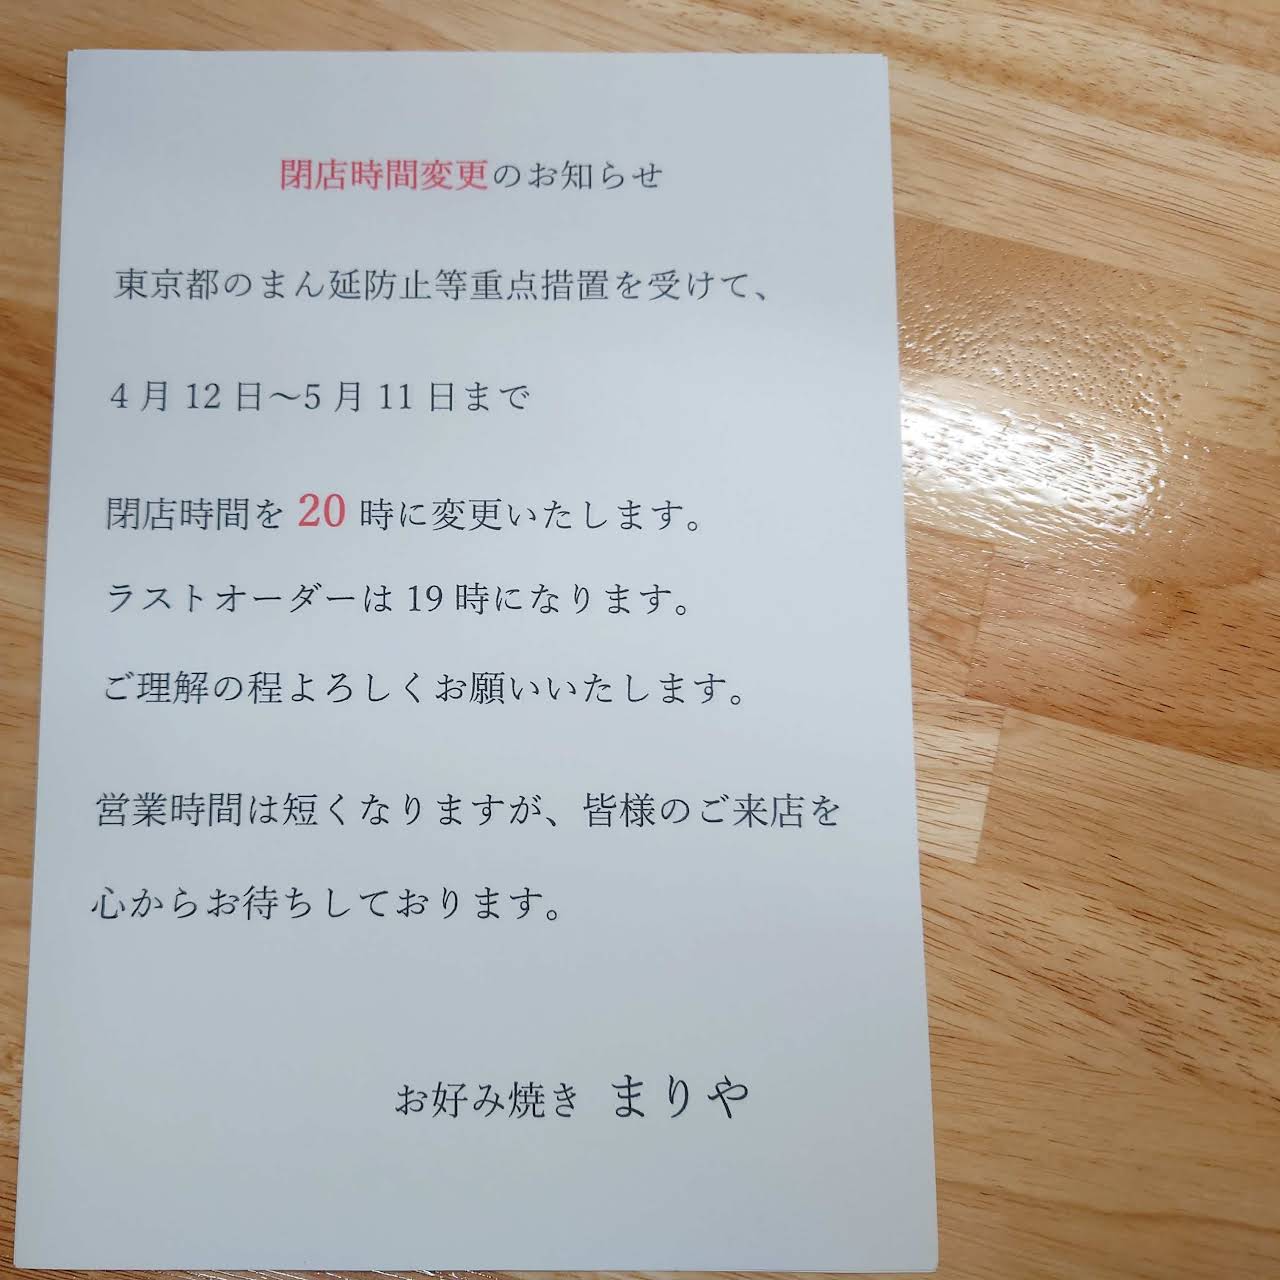 閉店時間変更のお知らせ
東京都のまん延防止等重点措置を受けて、
4 月 12 日～5 月 11 日まで
閉店時間を 20 時に変更いたします。
ラストオーダーは 19 時になります。
ご理解の程よろしくお願いいたします。
営業時間は短くなりますが、皆様のご来店を
心からお待ちしております。
お好み焼き まりや